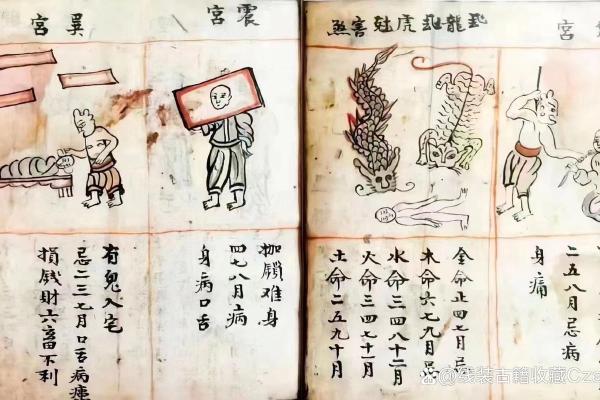 宮
二五八月忌病
身痛
飛龍飛虎尅害煞
金命正四七月忌
木命六七九月忌
水命三四八十二月
火命三四七十一月
土命二五九十月
震宮
枷鎖难身
四七八月病
身病口舌
巽宮
有鬼入宅
忌二三七月口舌病
損錢財六畜不利
@线装古籍收藏Cze